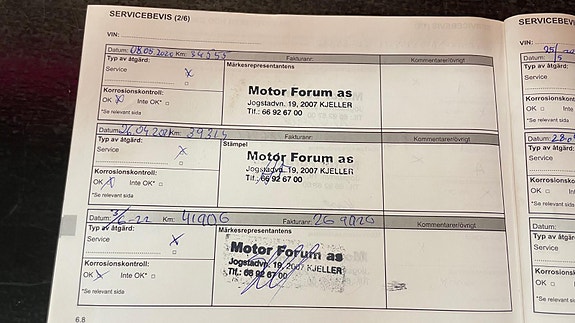 SERVICEBEVIS (2/6)
VIN:
Datum: 08.06.2020 Km: Fakturanr: Kommentarer/övrigt
Typ av åtgärd: Märkesrepresentantens
Service x
Motor Forum as
Korrosionskontroll: Jogstadvn. 19, 2007 KJELLER
OK x Inte OK* □ Tlf.: 66 92 67 00
*Se relevant sida
Datum: 26.04.2021 Km: 39214 Fakturanr: Kommentarer/övrigt
Typ av åtgärd: Stämpel
Service x
Motor Forum as
Korrosionskontroll: Jogstadvn. 19, 2007 KJELLER
OK x Inte OK* □ Tlf.: 66 92 67 00
*Se relevant sida
Datum: Km: Fakturanr: Kommentarer/övrigt
Typ av åtgärd: Märkesrepresentantens
Service x
Motor Forum as
Korrosionskontroll: Jogstadvn. 19, 2007 KJELLER
OK x Inte OK* □ Tlf.: 66 92 67 00
*Se relevant sida
6.6
SERVICEBEVIS
VIN:
Datum:
Typ av åtgärd:
Service
Korrosionskontroll
OK □
*Se relevant
Datum:
Typ av
Service
Korros
OK □
*Se rele
Datum:
Typ av
Service
Korros
OK □
*Se rele